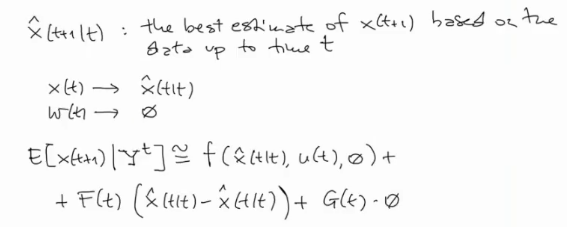 x̂(t+1|t) : the best estimate of x(t+1) based on the
data up to time t
x(t) → x̂(t|t)
w(t) → ∅
E[x(t+1)|Y^t] ≅ f(x̂(t|t), u(t), ∅) +
+ F(t) (x̂(t|t) - x̂(t|t)) + G(t) · ∅